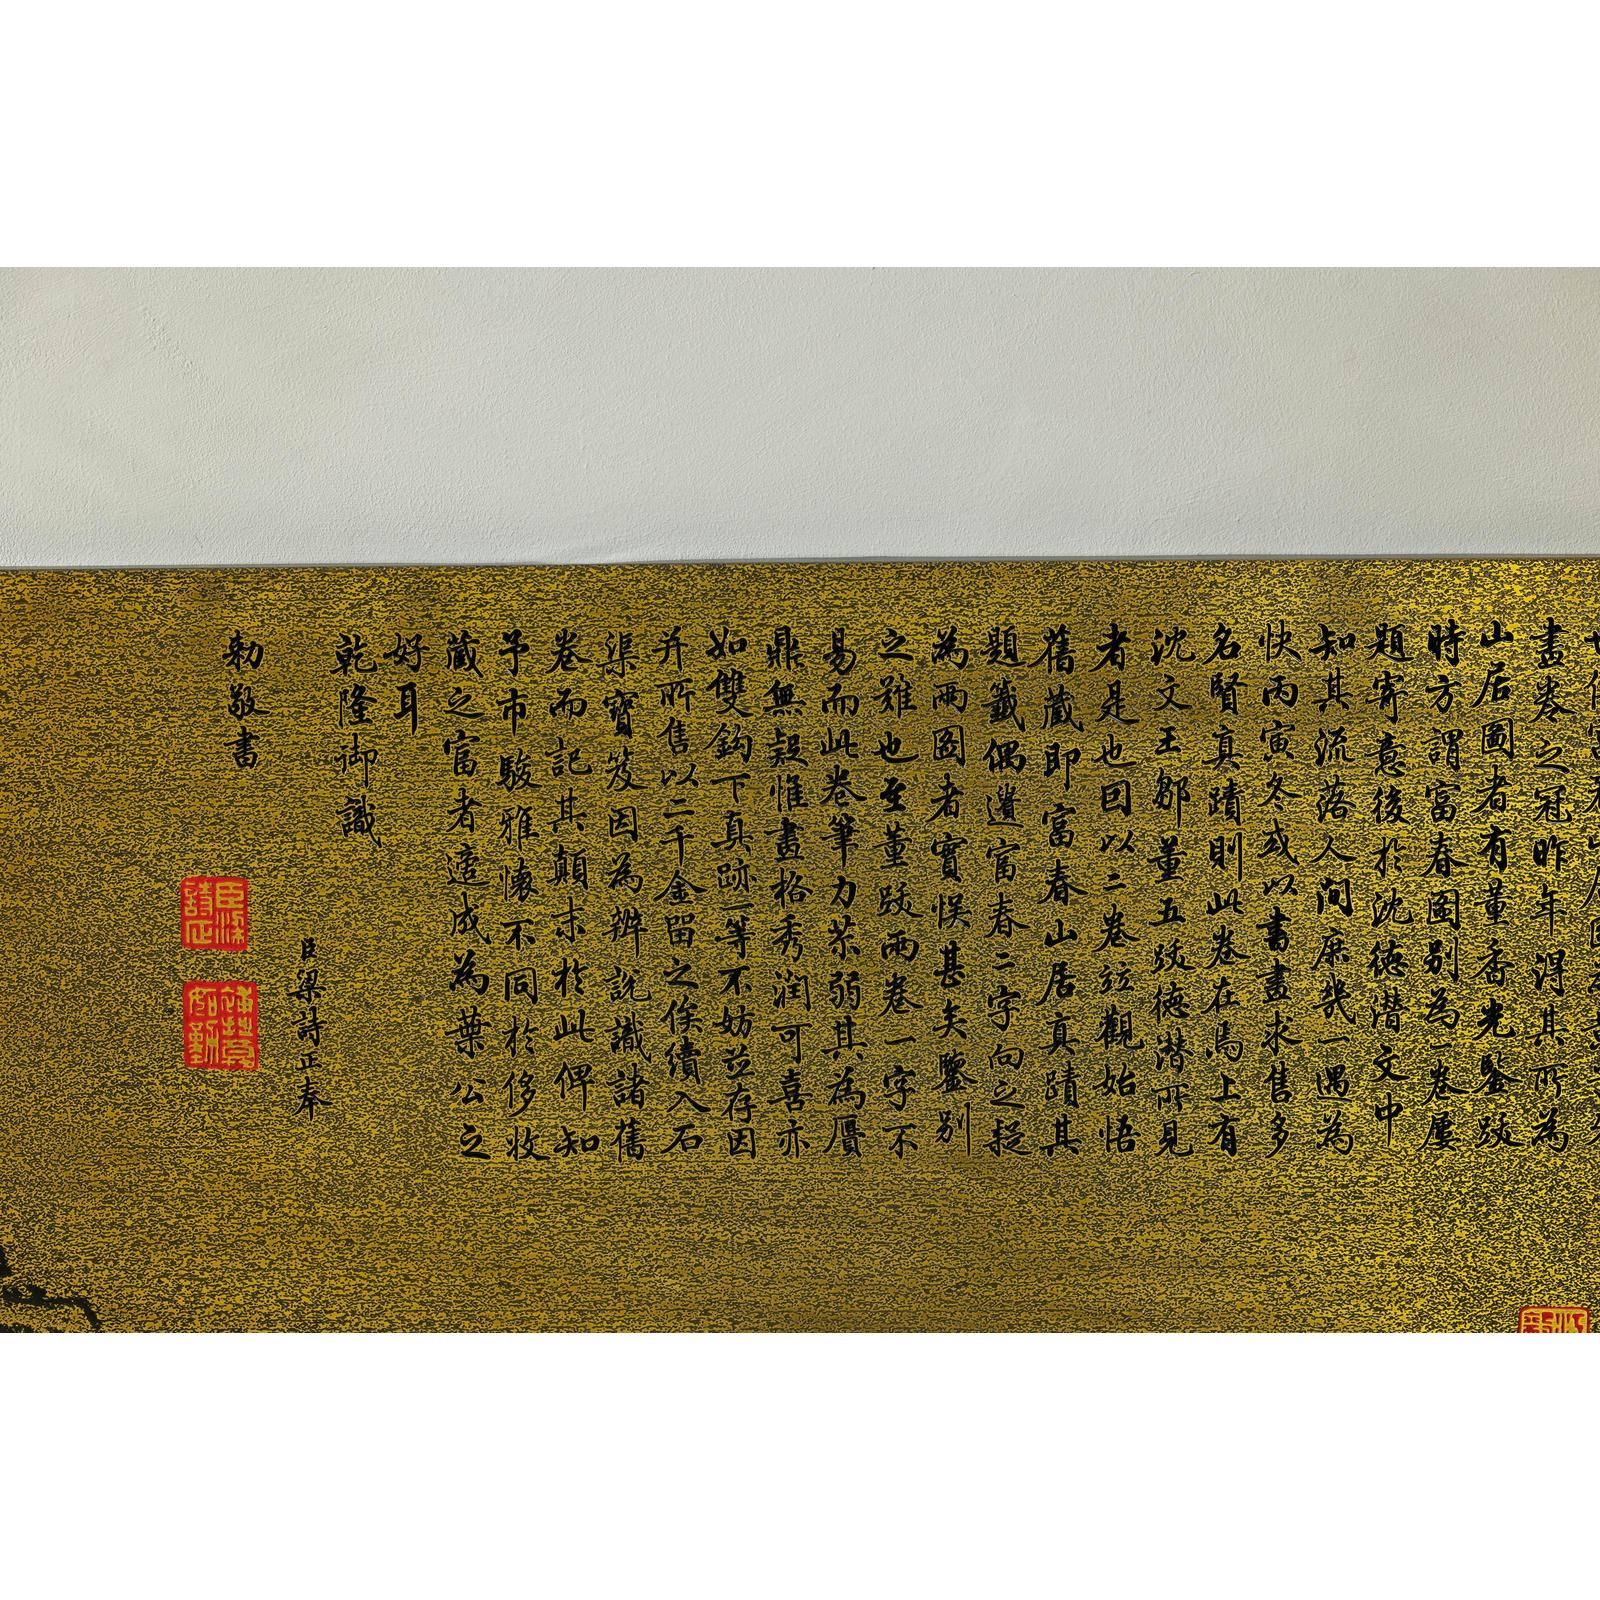 畫卷之冠昨年得其所為
山居圖者有董香光鑒跋
時方謂富春圖別為一卷屢
題寄意後於沈德潛文中
知其流落人間庶幾一遇為
快丙寅冬或以書畫求售多
名賢真蹟則此卷在焉上有
沈文王鄒董五跋德潛所見
者是也因以二卷竝觀始悟
舊藏即富春山居真蹟其
題籤偶遺富春二字向之疑
為兩圖者實悞甚矣鑒別
之難也至董跋兩卷一字不
易而此卷筆力苶弱其為贗
鼎無疑惟畫格秀潤可喜亦
如雙鉤下真跡一等不妨竝存因
并所售以二千金留之俟續入石
渠寶笈因為辨說識諸舊
卷而記其顛末於此俾知
予市駿雅懷不同於侈收
藏之富者適成為葉公之
好耳
乾隆御識
臣梁詩正奉
勅敬書
臣梁詩正